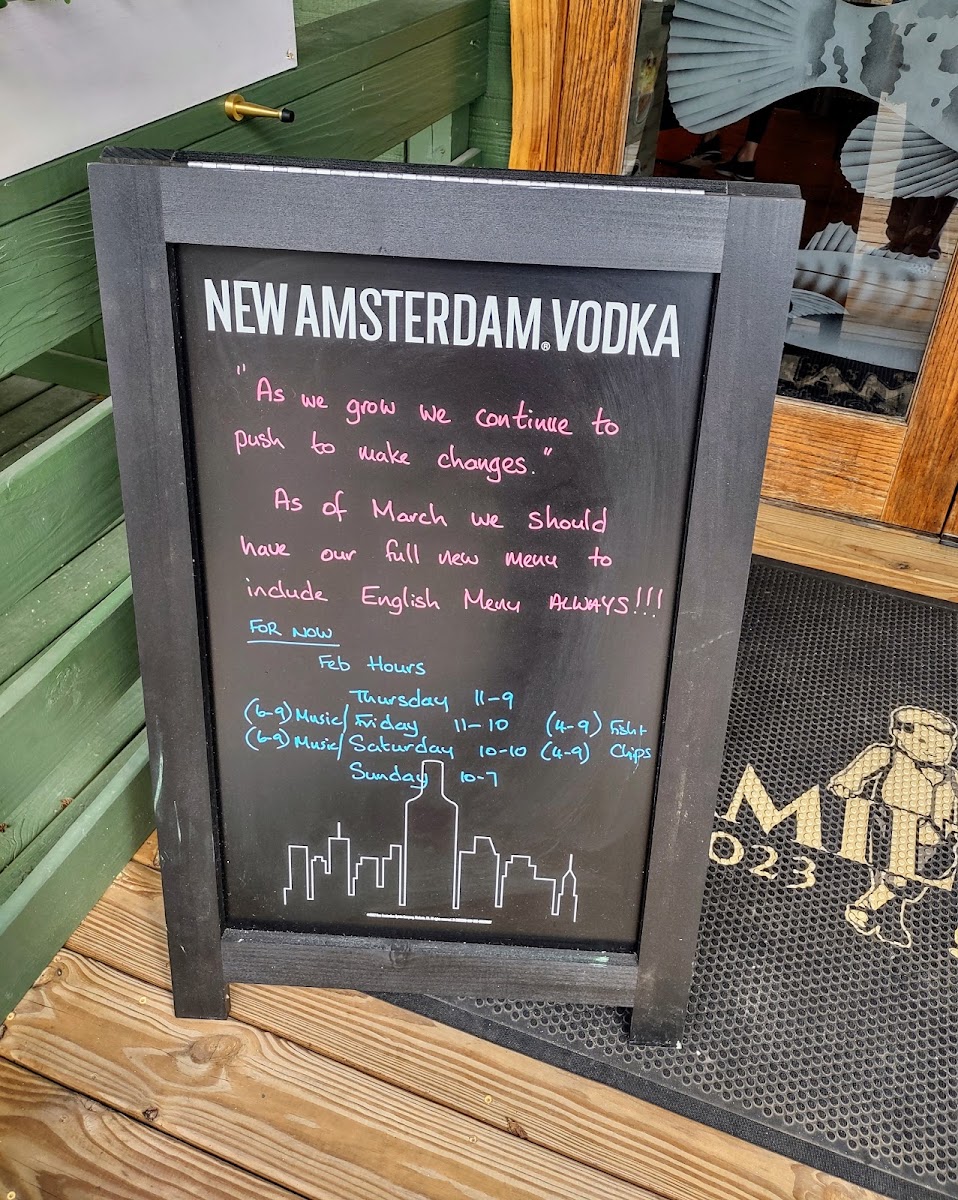 NEW AMSTERDAM® VODKA
"As we grow we continue to
push to make changes."
As of March we should
have our full new menu to
include English Menu ALWAYS!!!
FOR NOW
Feb Hours
Thursday 11-9
(6-9) Music/ Friday 11-10 (4-9) Fish +
(6-9) Music/ Saturday 10-10 (4-9) Chips
Sunday 10-7
023